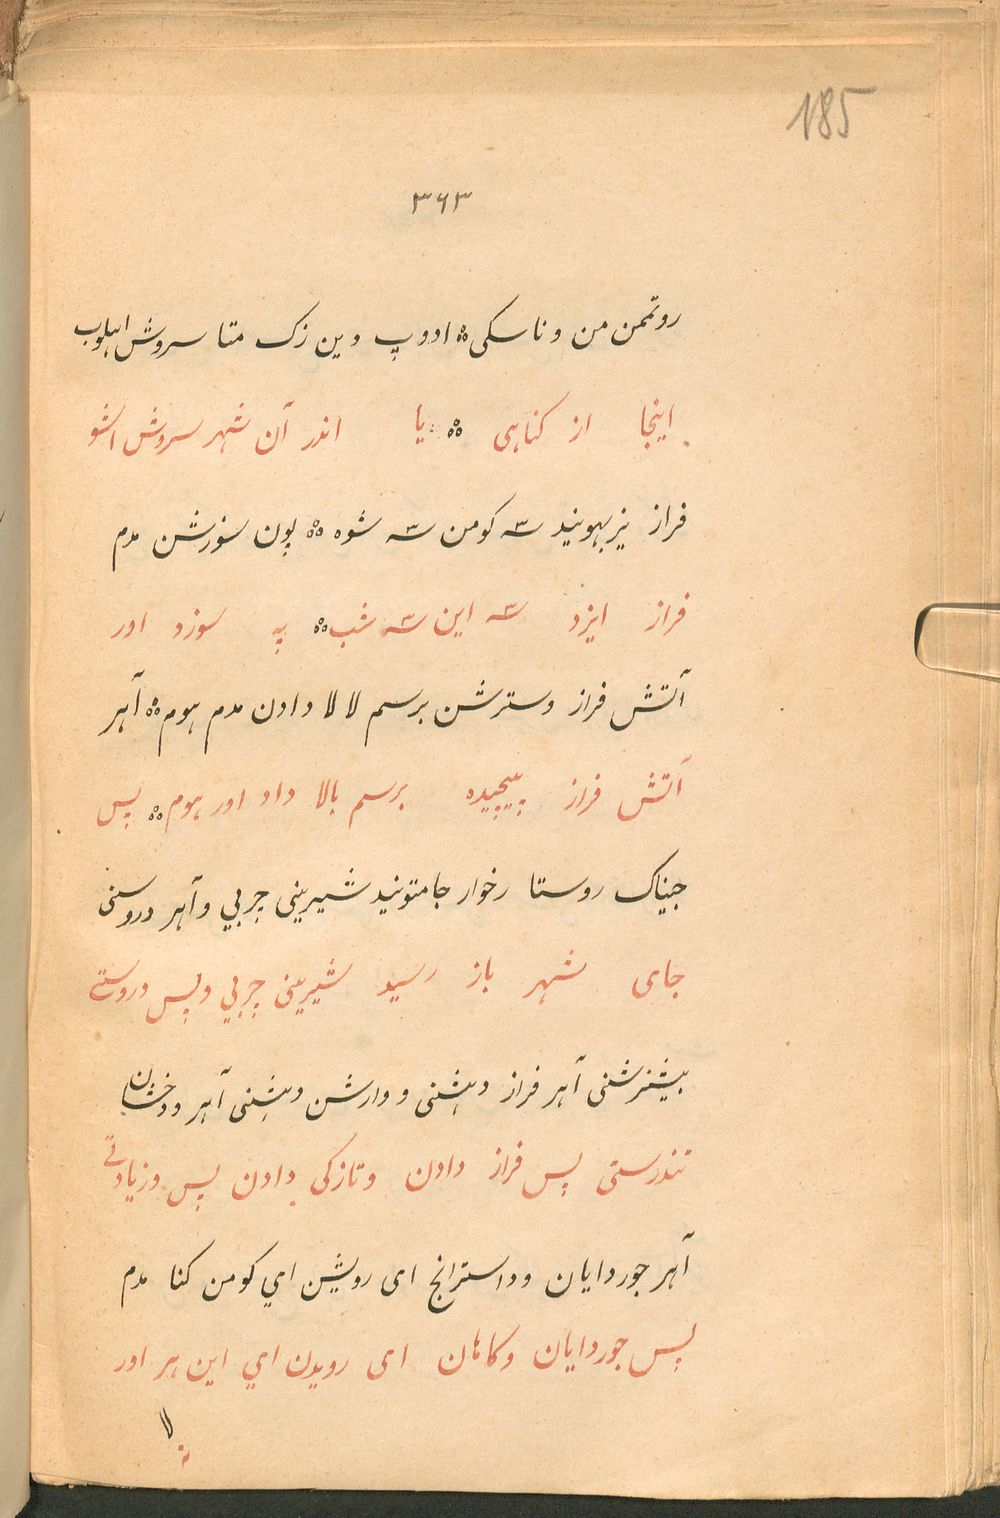 185
۳۶۳
روتمن من وناسکی ادوپ دین زک متا سروش اهلوب
اینجا از کناہی یا اندر آن شہر سروش اشو
فراز یزبہونید سہ کومن سہ شوہ پون سوزشن مدم
فراز ایزد سہ این سہ شب پہ سوزد اور
آتش فراز وسترشن برسم لالا دادن مدم ہوم آہر
آتش فراز پیچیدہ برسم بالا داد اور ہوم پس
جیناک روستا رخوار جامتونید شیرینی چربی وآہر دروستی
جای شہر باز رسید شیرینی چربی وپس دروستی
بیشزشنی آہر فراز دہشنی و وارشن دہشنی آہر ودخشان
تندرستی پس فراز دادن وتازکی دادن پس وزیادتی
آہر جوردایان وداسترانج ای رویشن ای کومن کنا مدم
پس جوردایان وکاہان ای رویدن ای این ہر اور
لا
نہ